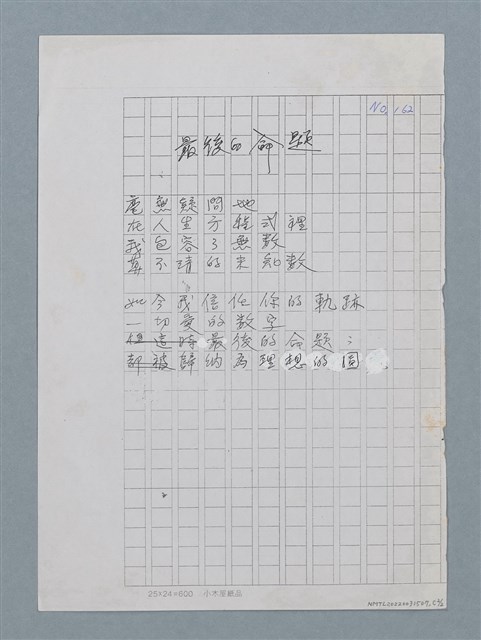 NO, 162
最後的命題
毫無疑問地
在人生方程式裡
我包容了無數
算不清的未知數
如今我信任你的軌跡
一切愛的數字
但這時最後的命題:
都被歸納為理想的圓
25×24=600 小木屋紙品